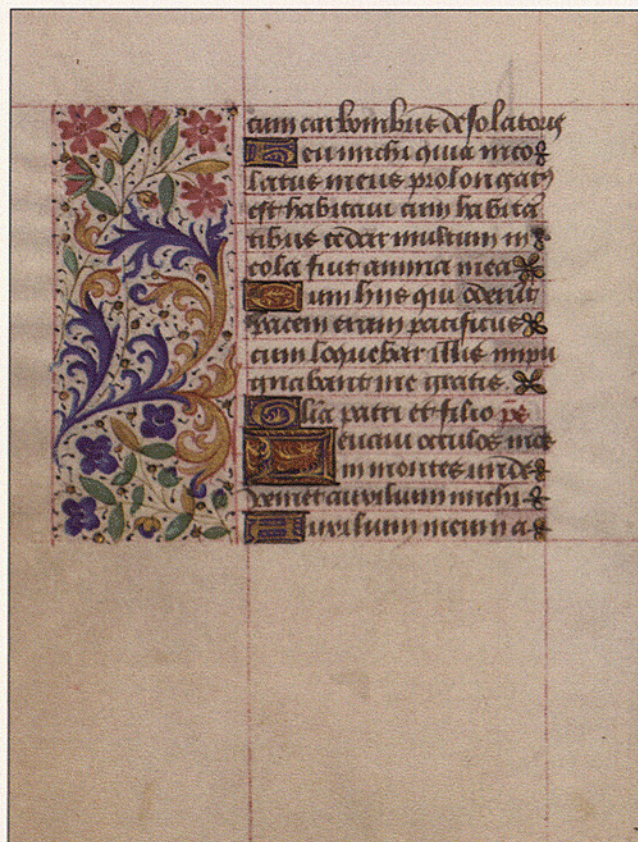 cum carbonibus desolatoriis
Heu michi quia inco
latus meus prolongatꝰ
est habitaui cum habitā
tibus cedar multum in
cola fuit anima mea
Cum hiis qui oderūt
pacem eram pacificus
cum loquebar illis impu
gnabant me gratis
Glīa patri et filio
Leuaui oculos meos
in montes unde
veniet auxilium michi
Auxilium meum a